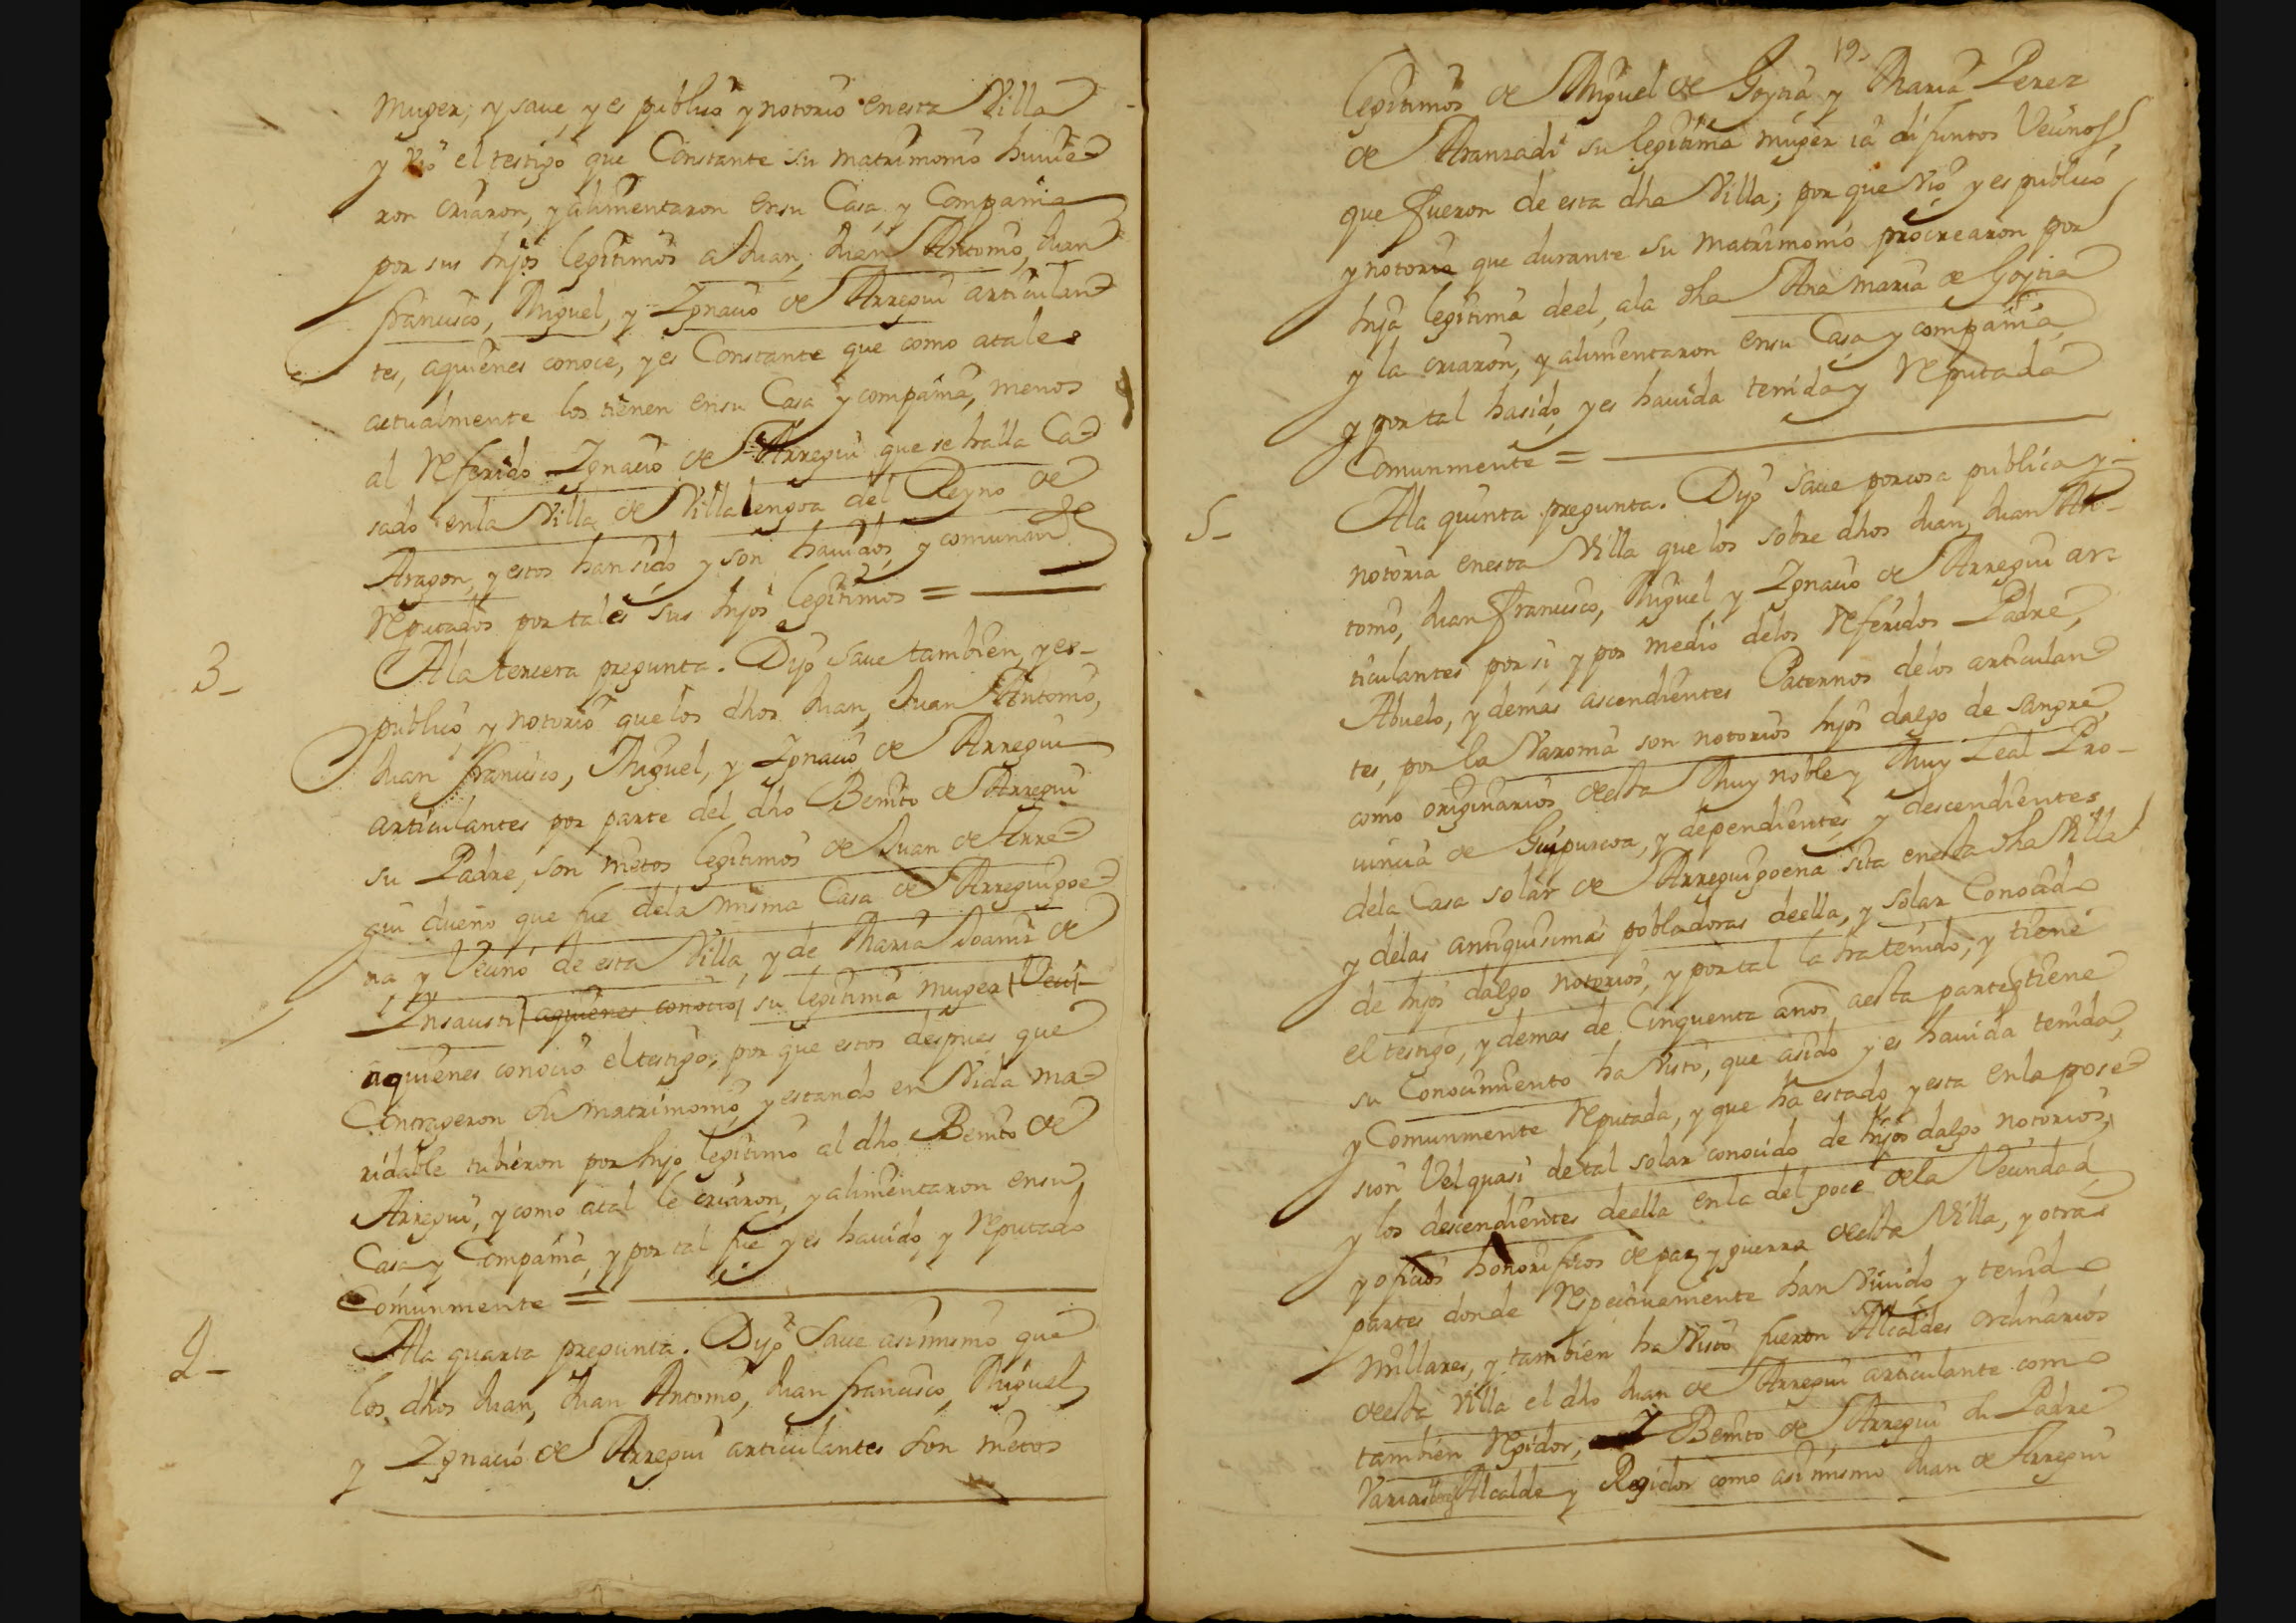 muger; y saue, y es publico y notorio en esta Villa
y vió el testigo que Constante su matrimonio huuie-
ron criaron, y alimentaron en su Casa, y Compañia
por sus hijos legitimos a Juan, Juan Antonio, Juan
francisco, Miguel, y Ygnacio de Arregui articulan-
tes, aquienes conoce, y es Constante que como atales
actualmente los tienen en su Casa y compañia, menos
al Referido Ygnacio de Arregui que se halla Ca-
sado en la Villa de Villalengoa del Reyno de
Aragon, y estos han sido y son hauidos, y comunm.te
Reputados por tales sus hijos legitimos =
3_
Ala tercera pregunta. Dijo saue tambien, y es_
publico, y notorio que los dhos Juan, Juan Antonio,
Juan francisco, Miguel, y Ygnacio de Arregui
articulantes por parte del dho Benito de Arregui
su Padre, son nietos legitimos de Juan de Arre-
gui dueño que fue dela misma Casa de Arreguigoe-
na y Vecino de esta Villa, y de Maria Joaniz de
Ynsausti aquienes conocio su legitima muger Veci-
aquienes conoció el testigo; por que estos despues que
Contrageron su matrimonio, y estando en Vida ma-
ridable tubieron por hijo legitimo al dho Benito de
Arregui, y como atal le criaron, y alimentaron en su
Casa y Compañia, y por tal fue y es hauido, y Reputado
Comunmente =
4_
Ala quarta pregunta. Dijo Saue asimismo que
los dhos Juan, Juan Antonio, Juan francisco, Miguel,
y Ygnacio de Arregui articulantes son nietos
19
legitimos de Miguel de Goytia y Maria Perez
de Aranzadi su legitima muger iá difuntos Vecinos,
que fueron de esta dha Villa; por que vió y es publico
y notorio que durante su matrimonio procrearon por
hija legitima deel, ala dha Ana maria de Goytia
y la criaron, y alimentaron en su Casa y compañia,
y por tal ha sido, y es hauida tenida y Reputada
Comunmente =
5_
Ala quinta pregunta. Dijo saue por cosa publica y_
notoria en esta Villa que los sobre dhos Juan, Juan An-
tonio, Juan francisco, Miguel y Ygnacio de Arregui ar-
ticulantes por si, y por medio delos Referidos Padre,
Abuelo, y demas ascendientes Paternos delos articulan-
tes, por la Varonia son notorios hijos dalgo de sangre,
como originarios deesta Muy noble y Muy Leal Pro-
uincia de Guipuscoa, y dependientes, y descendientes
dela Casa solar de Arreguigoena sita en esta dha Villa
y delas antiquisimas pobladoras deella, y solar Conocido
de hijos dalgo notorios, y por tal la ha tenido, y tiene
el testigo, y demas de Cinquenta años aesta parte q tiene
su Conocimiento ha visto, que asido y es hauida tenida,
y Comunmente Reputada, y que ha estado y esta en la pose-
sion Velquasi de tal solar conocido de hijos dalgo notorios,
y los descendientes deella en la del goce dela Vecindad,
y oficios honorificos de paz, y guerra deesta Villa, y otras
partes donde Respectiuamente han Viuido y tenido
millares, y tambien ha visto fueron Alcaldes ordinarios
deesta Villa el dho Juan de Arregui articulante como
tambien Regidor, Y Benito de Arregui su Padre
Varias Alcalde y Regidor como asimismo Juan de Arregui